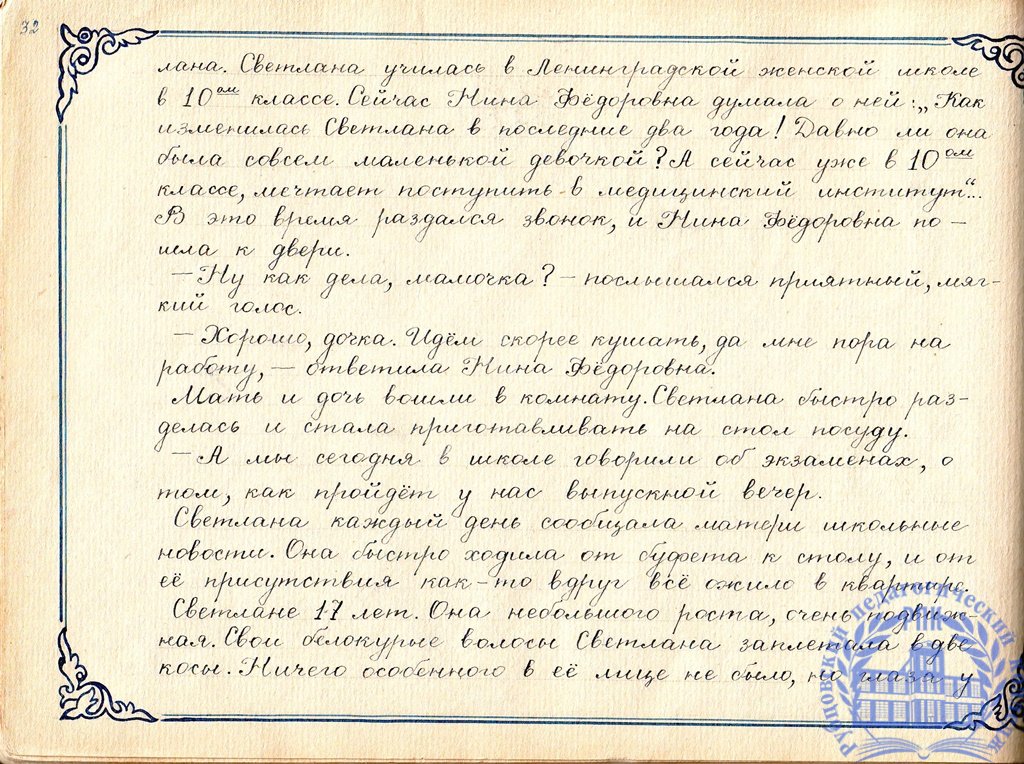 32
лана. Светлана училась в Ленинградской женской школе
в 10ом классе. Сейчас Нина Фёдоровна думала о ней: „Как
изменилась Светлана в последние два года! Давно ли она
была совсем маленькой девочкой? А сейчас уже в 10ом
классе, мечтает поступить в медицинский институт“...
В это время раздался звонок, и Нина Фёдоровна по-
шла к двери.
— Ну как дела, мамочка? — послышался приятный, мяг-
кий голос.
— Хорошо, дочка. Идём скорее кушать, да мне пора на
работу, — ответила Нина Фёдоровна.
Мать и дочь вошли в комнату. Светлана быстро раз-
делась и стала приготавливать на стол посуду.
— А мы сегодня в школе говорили об экзаменах, о
том, как пройдёт у нас выпускной вечер.
Светлана каждый день сообщала матери школьные
новости. Она быстро ходила от буфета к столу, и от
её присутствия как-то вдруг всё ожило в квартире.
Светлане 17 лет. Она небольшого роста, очень подвиж-
ная. Свои белокурые волосы Светлана заплетала в две
косы. Ничего особенного в её лице не было, но глаза у
педагогический